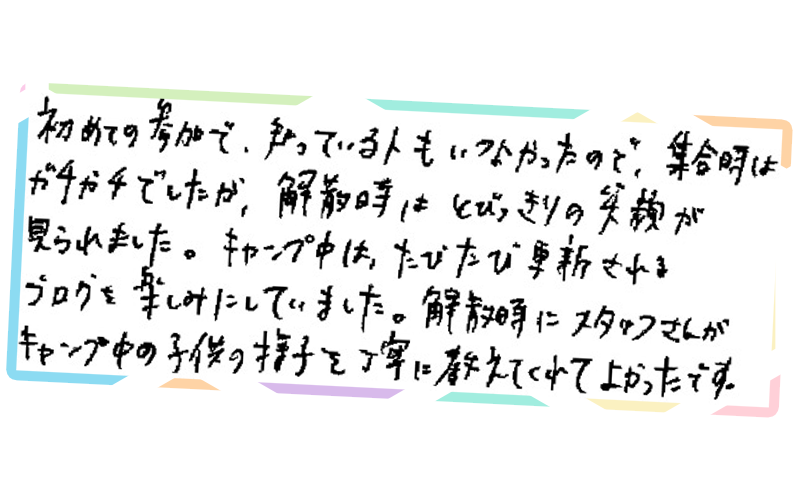 初めての参加で、知っている人もいなかったので、集合時は
ガチガチでしたが、解散時はとびっきりの笑顔が
見られました。キャンプ中は、たびたび更新される
ブログを楽しみにしていました。解散時にスタッフさんが
キャンプ中の子供の様子を丁寧に教えてくれてよかったです。